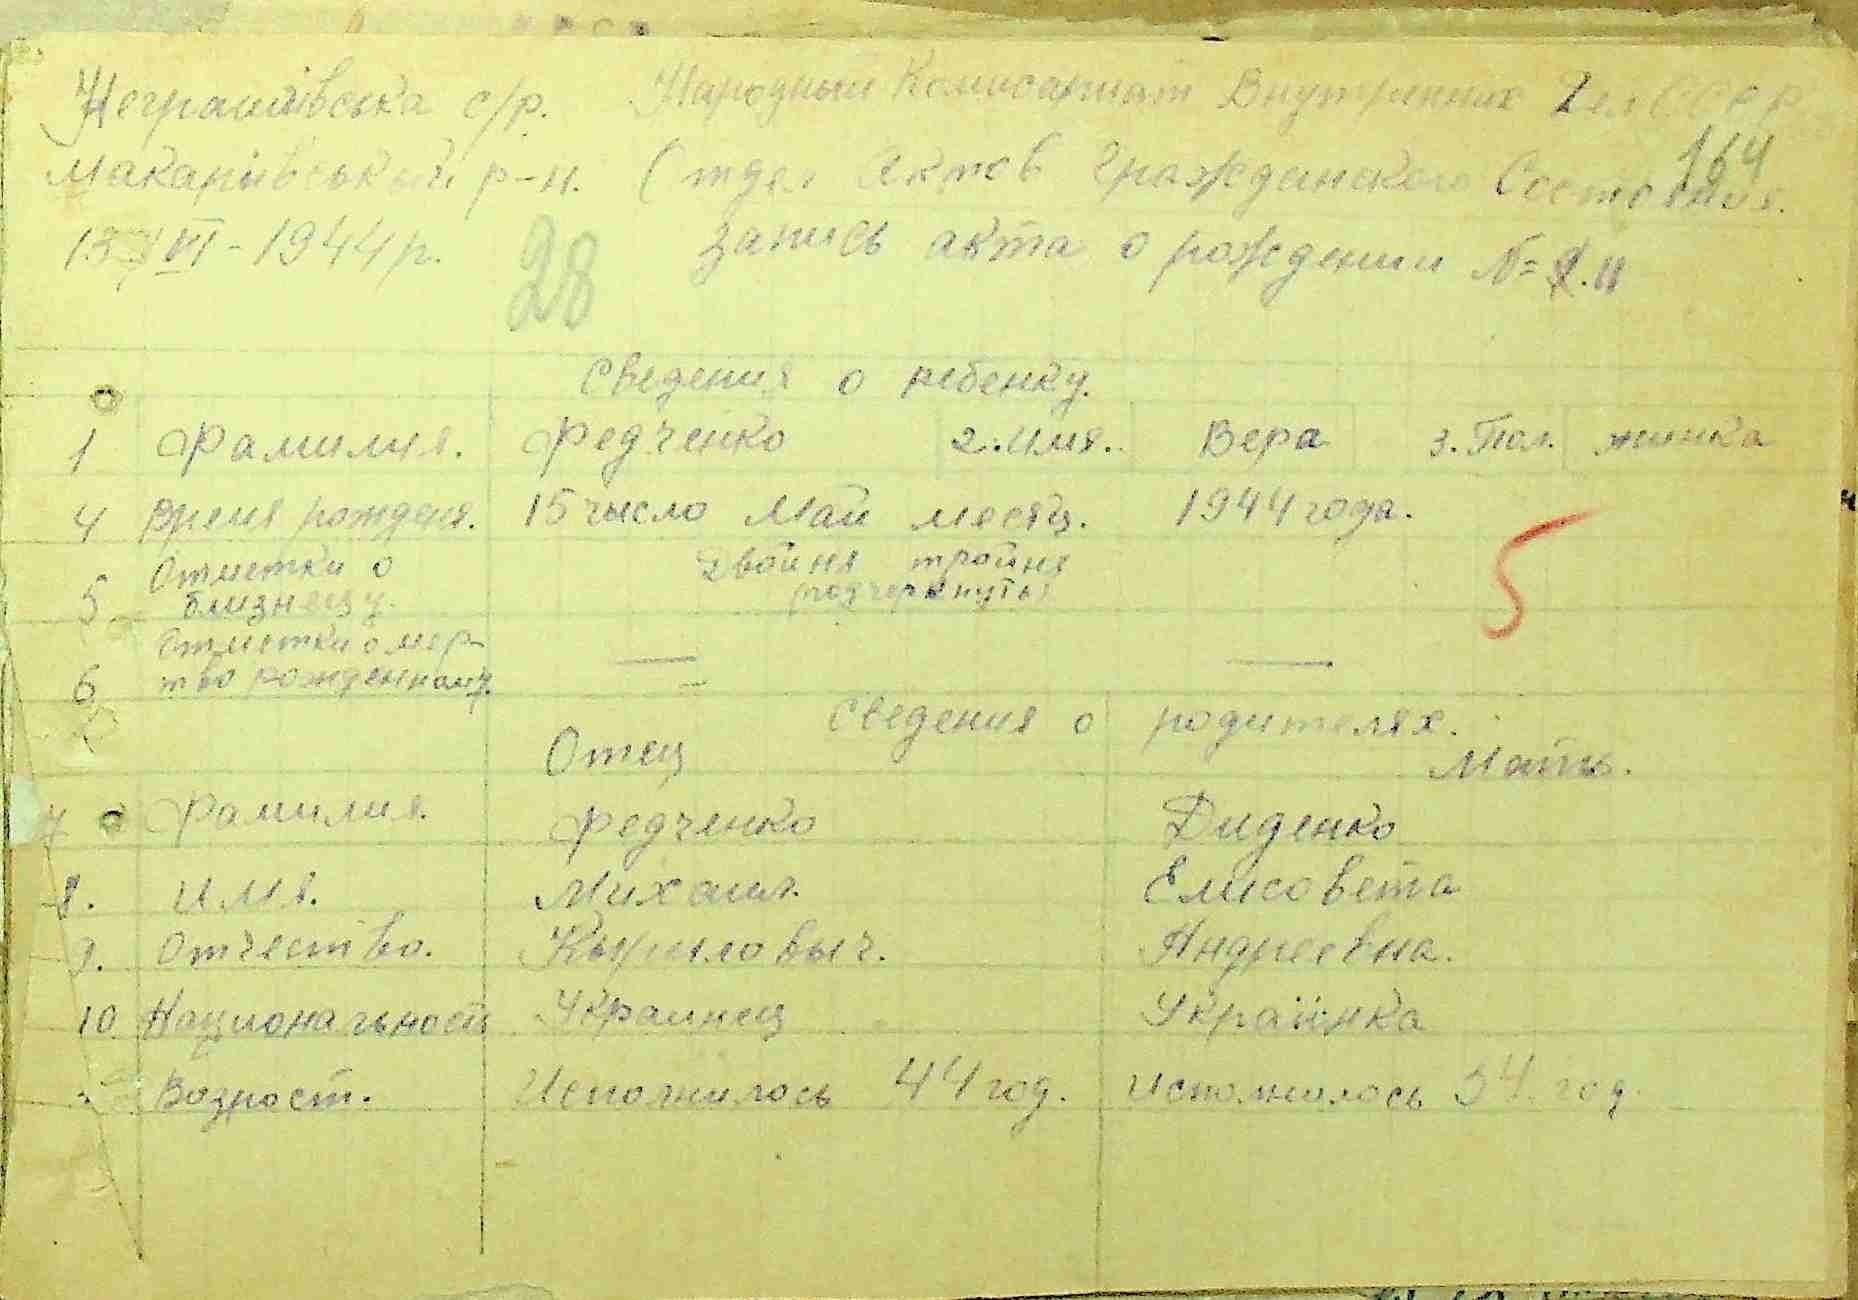 Неграшівська с/р. Народный Комисариат Внутренних Дел СССР
164
Макарівський р-н. Отдел Актов Гражданского Состояния.
13/VI - 1944 р. Запись акта о рождении № 11
28
Сведения о ребенку.
1 Фамилия. Федченко 2. Имя.. Вера 3. Пол. жинка
4 Время рожденя. 15 число Май месяц. 1944 года.
5
5 Отметки о близнецу. Двойня тройня
(подчеркнуть)
6 Отметки о мер-
тво рожденному. — —
Сведения о родителях.
Отец Мать.
7 Фамилия. Федченко Диденко
8. Имя. Михаил. Елисовета
9. Отчество. Кырыловыч. Андреевна.
10 Национальность Украинец Українка
Возрост. Исполнилось 44 год. Исполнилось 34 год.